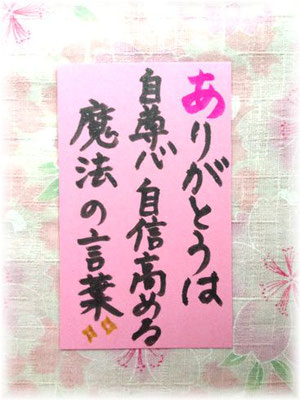 ありがとうは
自尊心自信高める
魔法の言葉